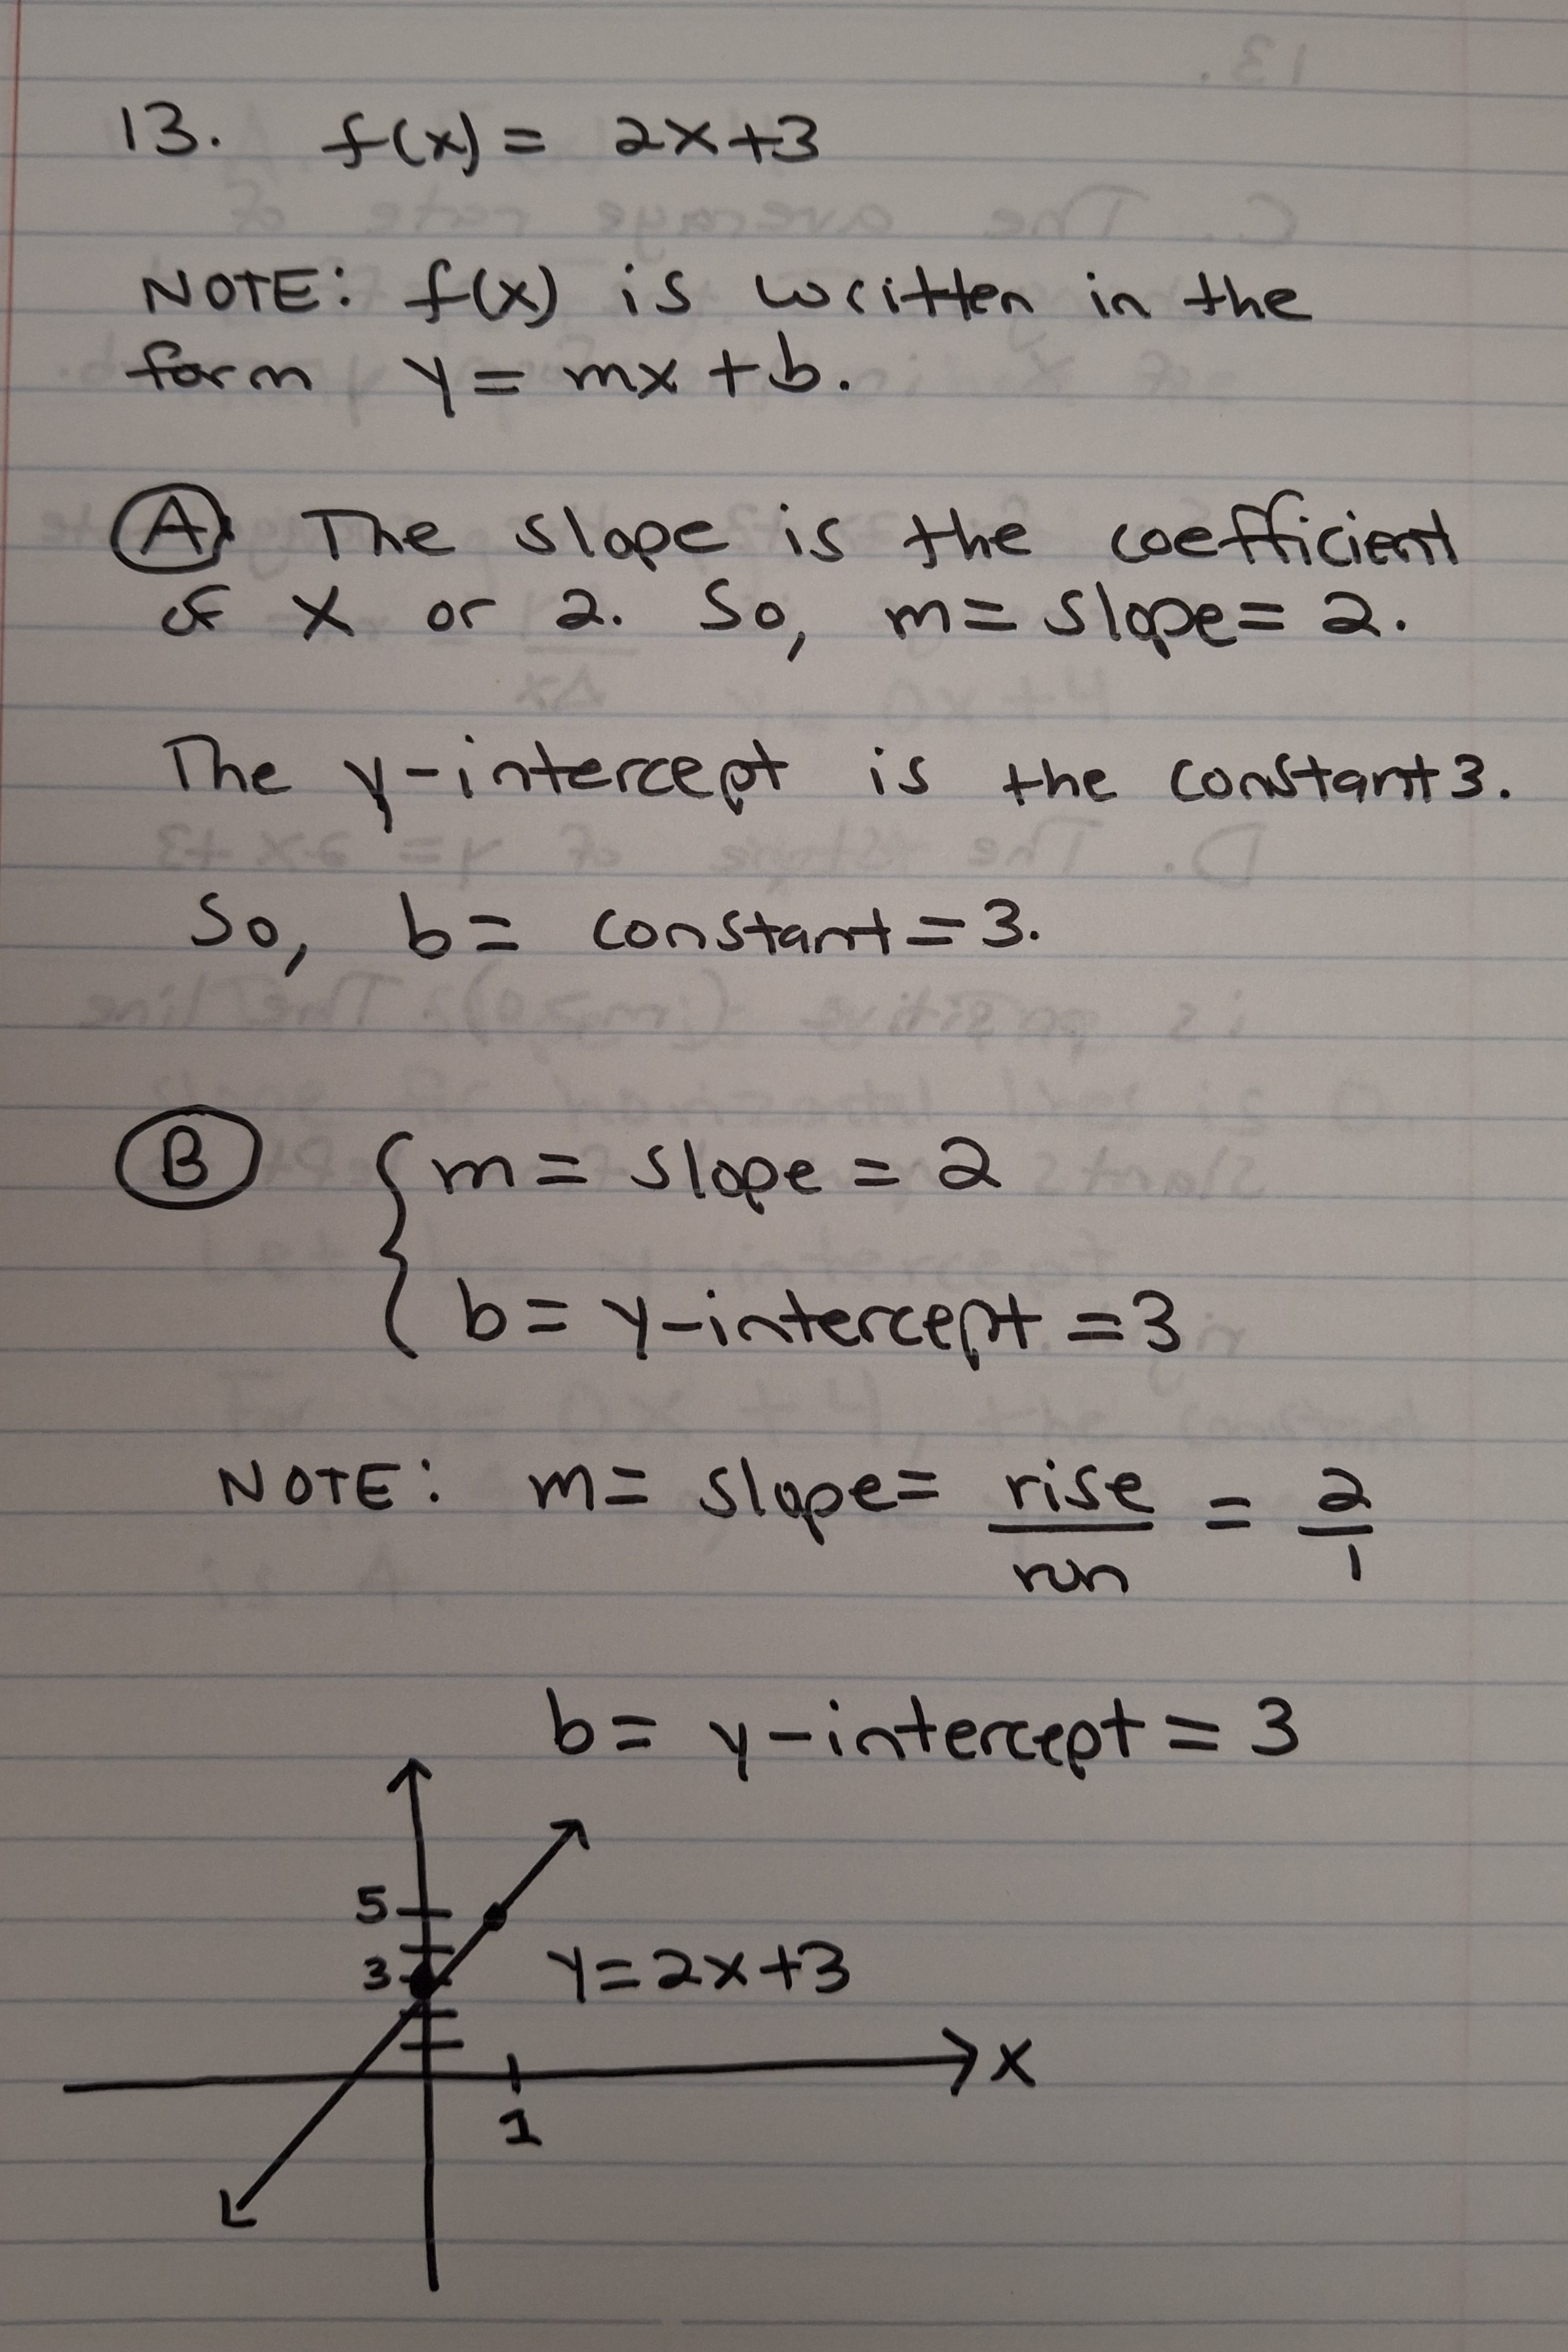 13. f(x) = 2x+3
NOTE: f(x) is written in the
form y = mx + b.
A The slope is the coefficient
of x or 2. So, m = slope = 2.
The y-intercept is the constant 3.
So, b = constant = 3.
B { m = slope = 2
b = y-intercept = 3
NOTE: m = slope = rise/run = 2/1
b = y-intercept = 3
5
3 y = 2x+3
x
1